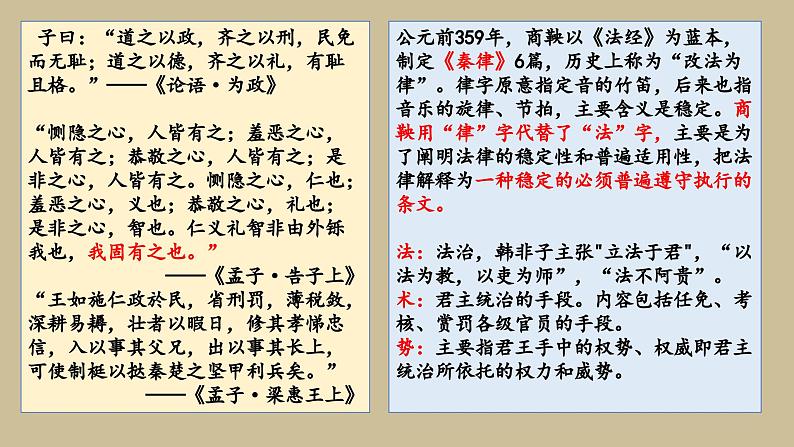 子曰：“道之以政，齐之以刑，民免
而无耻；道之以德，齐之以礼，有耻
且格。”——《论语·为政》
“恻隐之心，人皆有之；羞恶之心，
人皆有之；恭敬之心，人皆有之；是
非之心，人皆有之。恻隐之心，仁也；
羞恶之心，义也；恭敬之心，礼也；
是非之心，智也。仁义礼智非由外铄
我也，我固有之也。”
——《孟子·告子上》
“王如施仁政於民，省刑罚，薄税敛，
深耕易耨，壮者以暇日，修其孝悌忠
信，入以事其父兄，出以事其长上，
可使制梃以挞秦楚之坚甲利兵矣。”
——《孟子·梁惠王上》
公元前359年，商鞅以《法经》为蓝本，
制定《秦律》6篇，历史上称为“改法为
律”。律字原意指定音的竹笛，后来也指
音乐的旋律、节拍，主要含义是稳定。商
鞅用“律”字代替了“法”字，主要是为
了阐明法律的稳定性和普遍适用性，把法
律解释为一种稳定的必须普遍遵守执行的
条文。
法：法治，韩非子主张"立法于君"，“以
法为教，以吏为师”，“法不阿贵”。
术：君主统治的手段。内容包括任免、考
核、赏罚各级官员的手段。
势：主要指君王手中的权势、权威即君主
统治所依托的权力和威势。